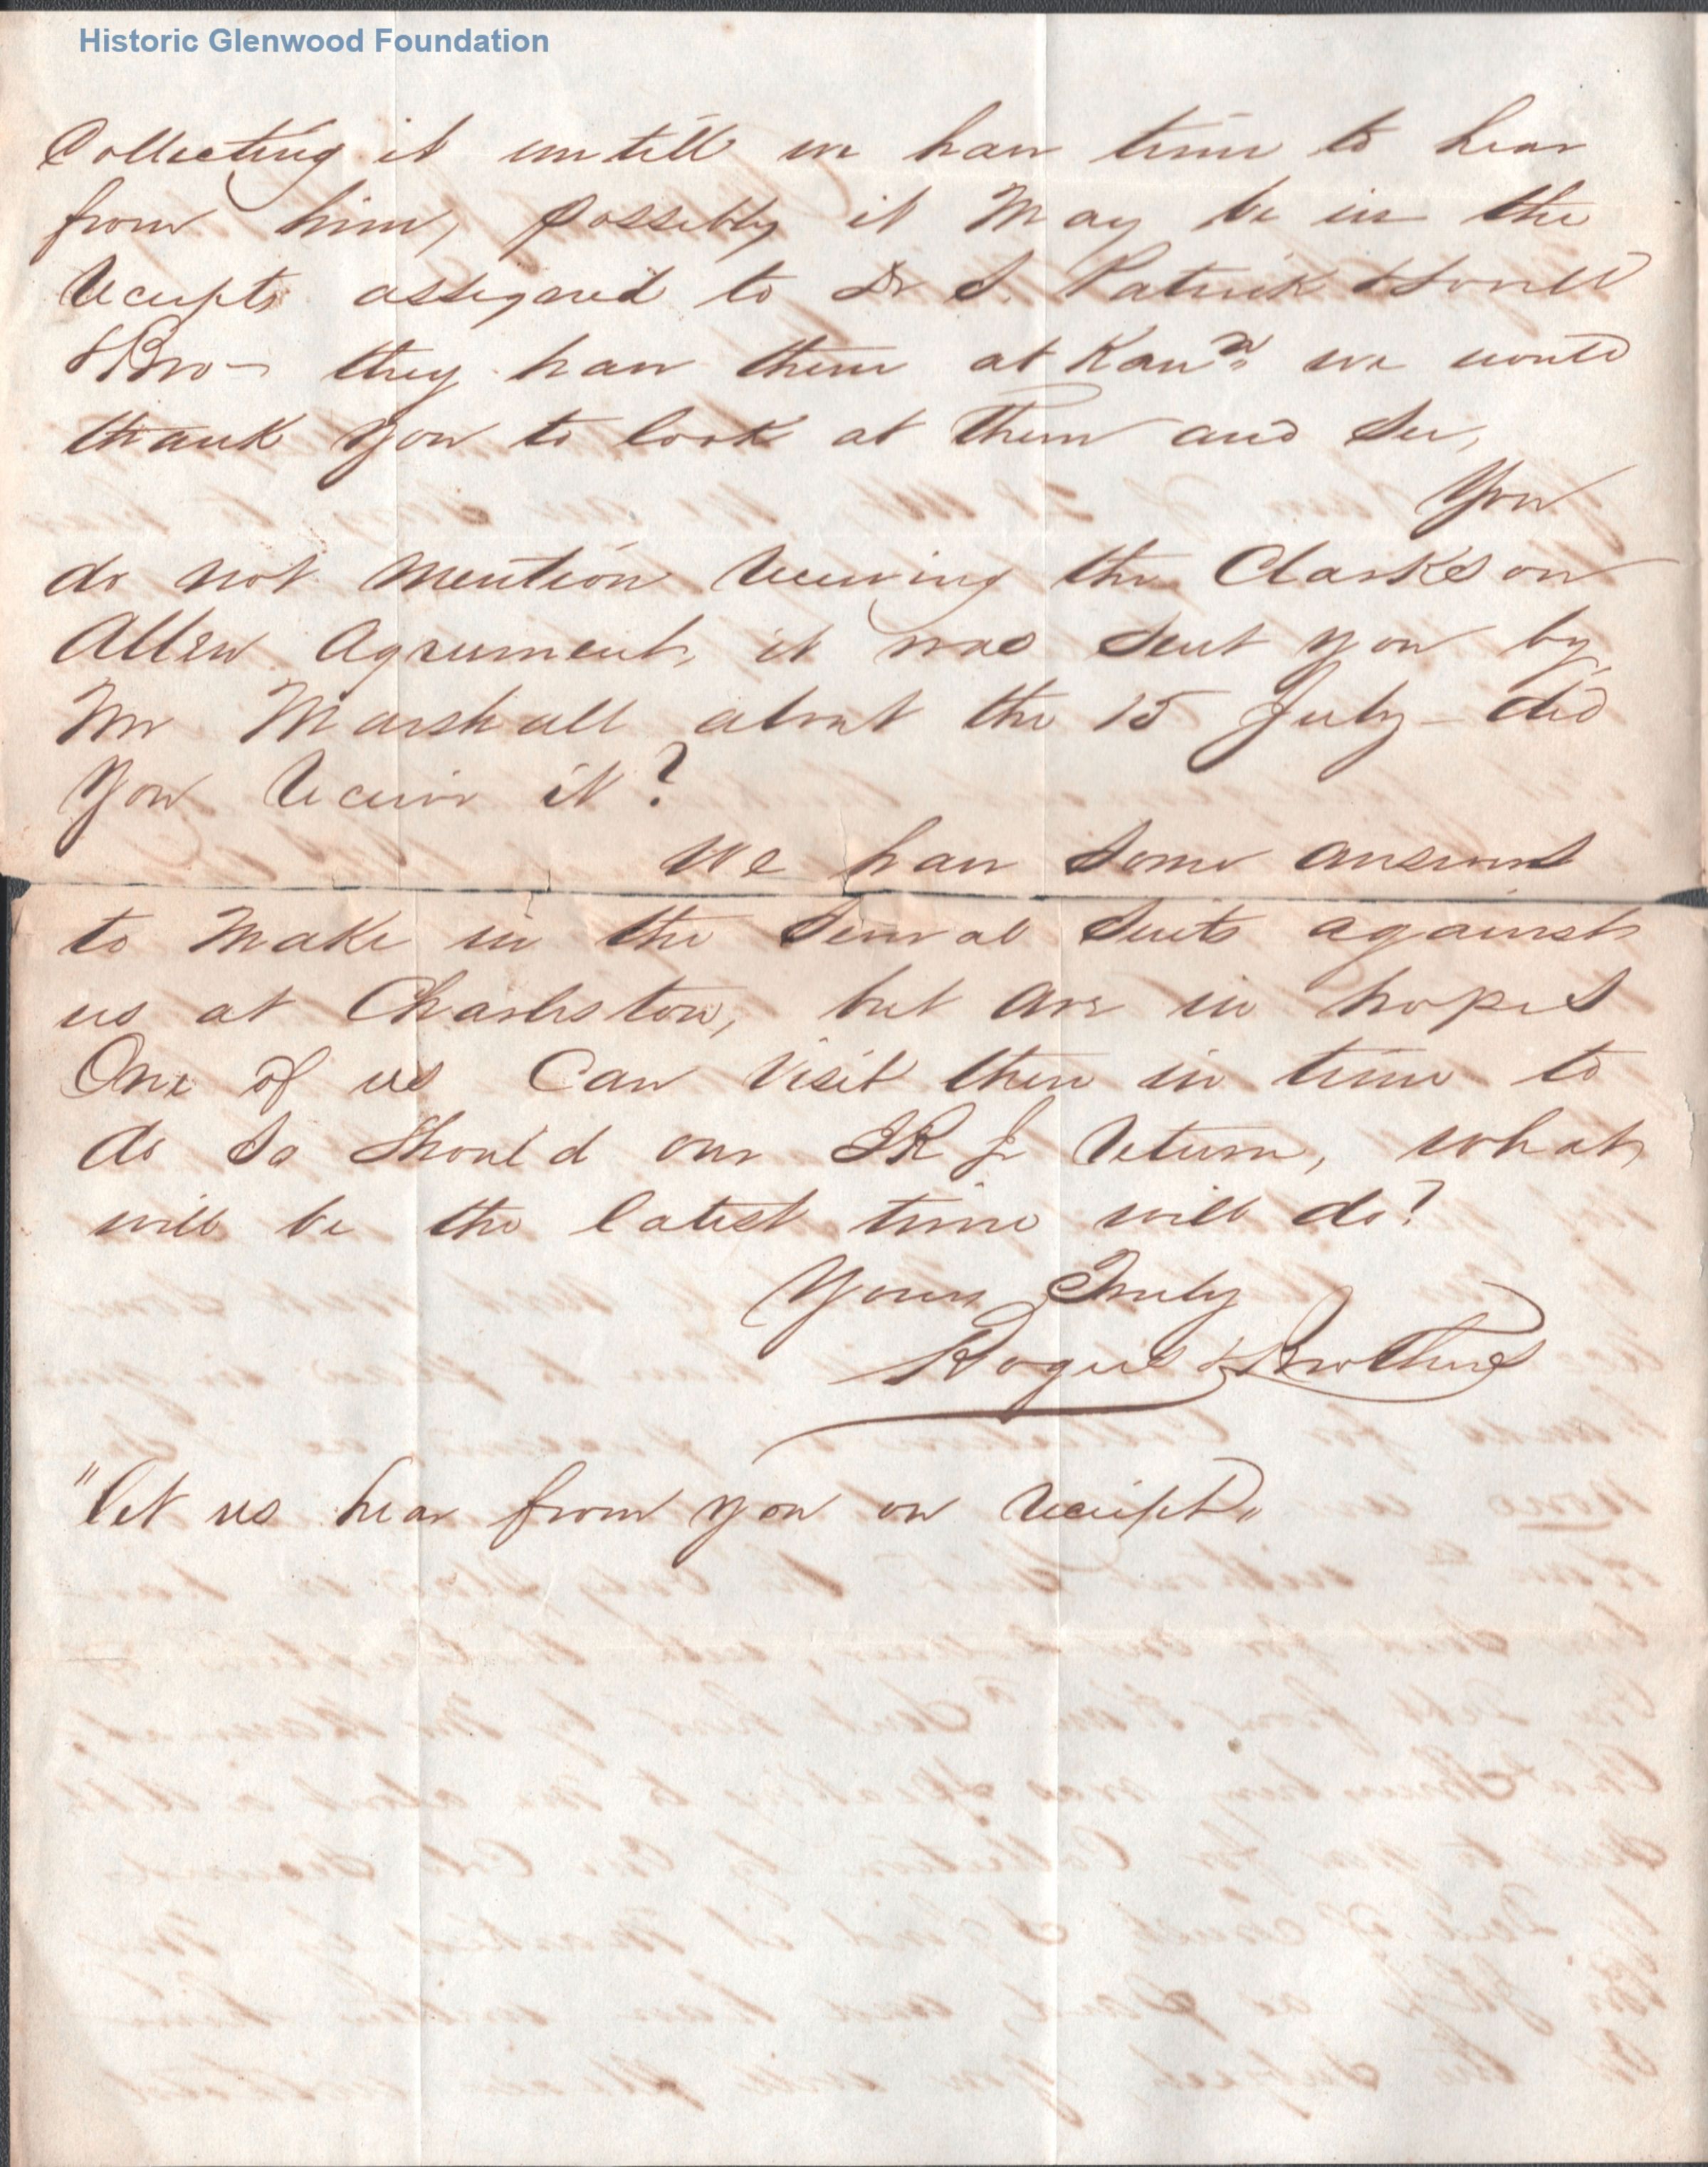 Historic Glenwood Foundation
Collecting it untill we have time to hear
from him, possibly it May be in the
Receipts assigned to Dr S. Patrick &
& Bro— they have them at Kanª. we would
thank you to look at them and see,
You
do not mention receiving the Clarkson
Allen Agreement, it was sent you by
Mr Marshall about the 15 July — did
you receive it?
We have some answers
to Make in the several suits against
us at Charleston, but are in hopes
One of us Can visit there in time to
do so should our JR Jr return, what
will be the latest time will do?
Yours Truly
Rogers & Brothers
"let us hear from you on receipt"